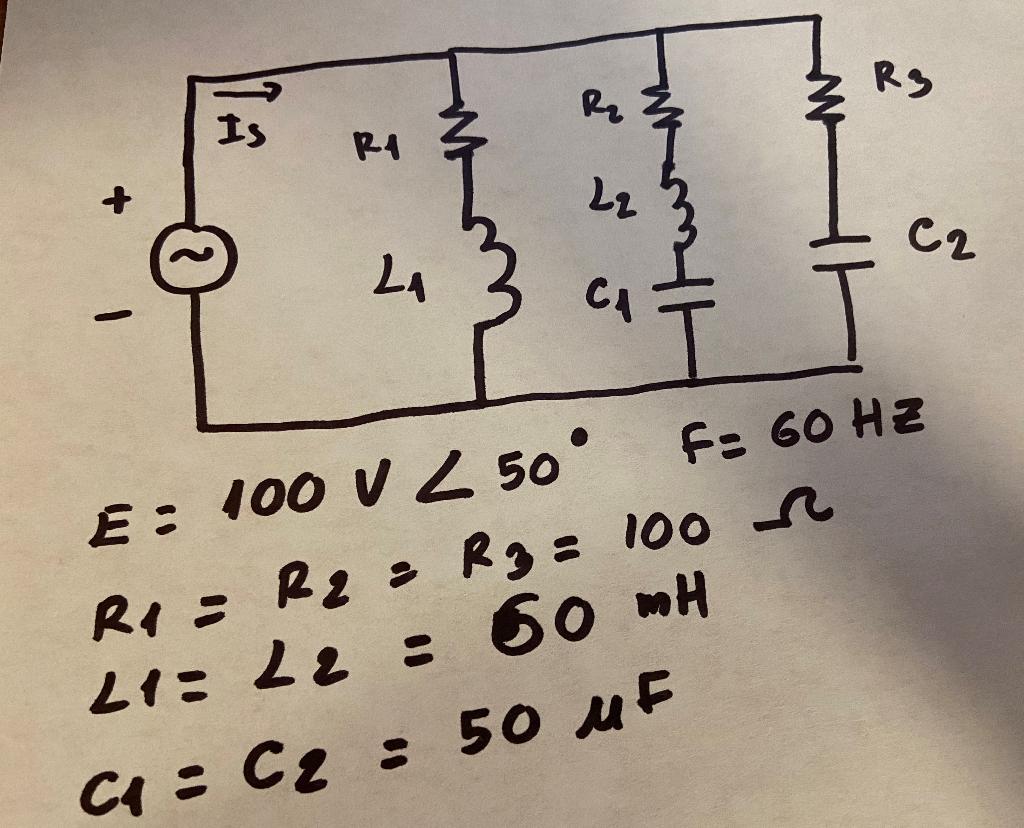 Is
+
-
R1
L1
R2
L2
C1
R3
C2
E = 100 V ∠ 50° F= 60 HZ
R1 = R2 = R3 = 100 Ω
L1 = L2 = 60 mH
C1 = C2 = 50 μF